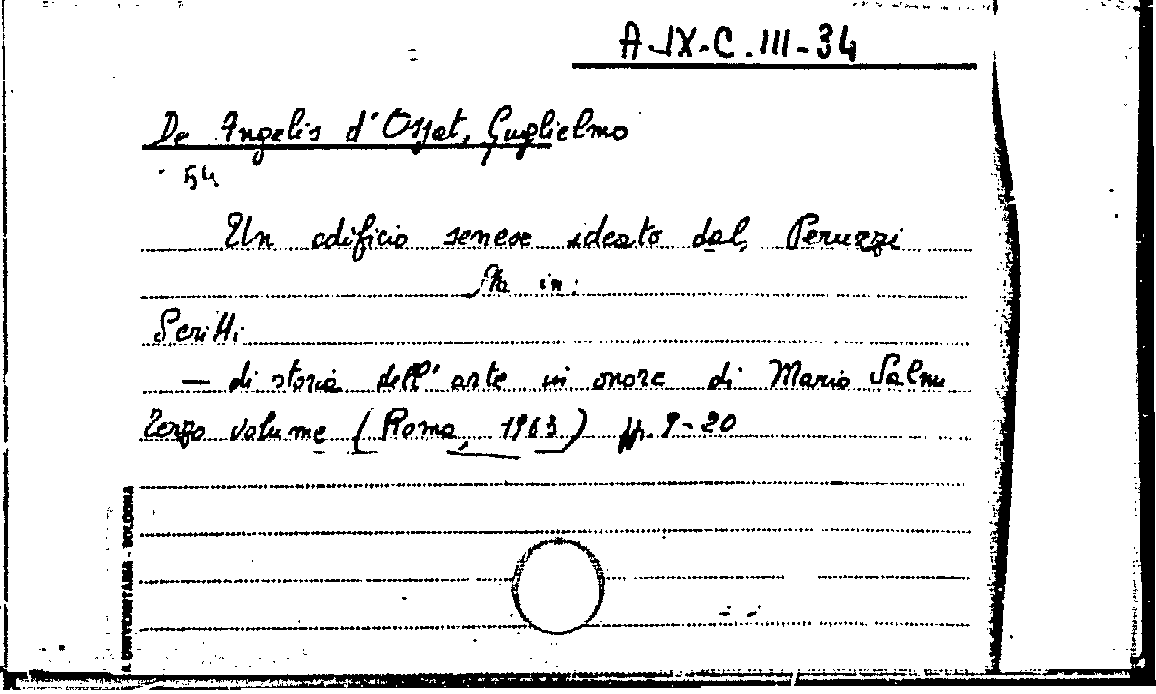 A-IX-C.III-34
De Angelis d'Ossat, Guglielmo
54
Un edificio senese ideato dal Peruzzi
Sta in:
Scritti
— di storia dell'arte in onore di Mario Salmi
terzo volume (Roma, 1963) pp. 9-20
A UNIVERSITARIA - BOLOGNA